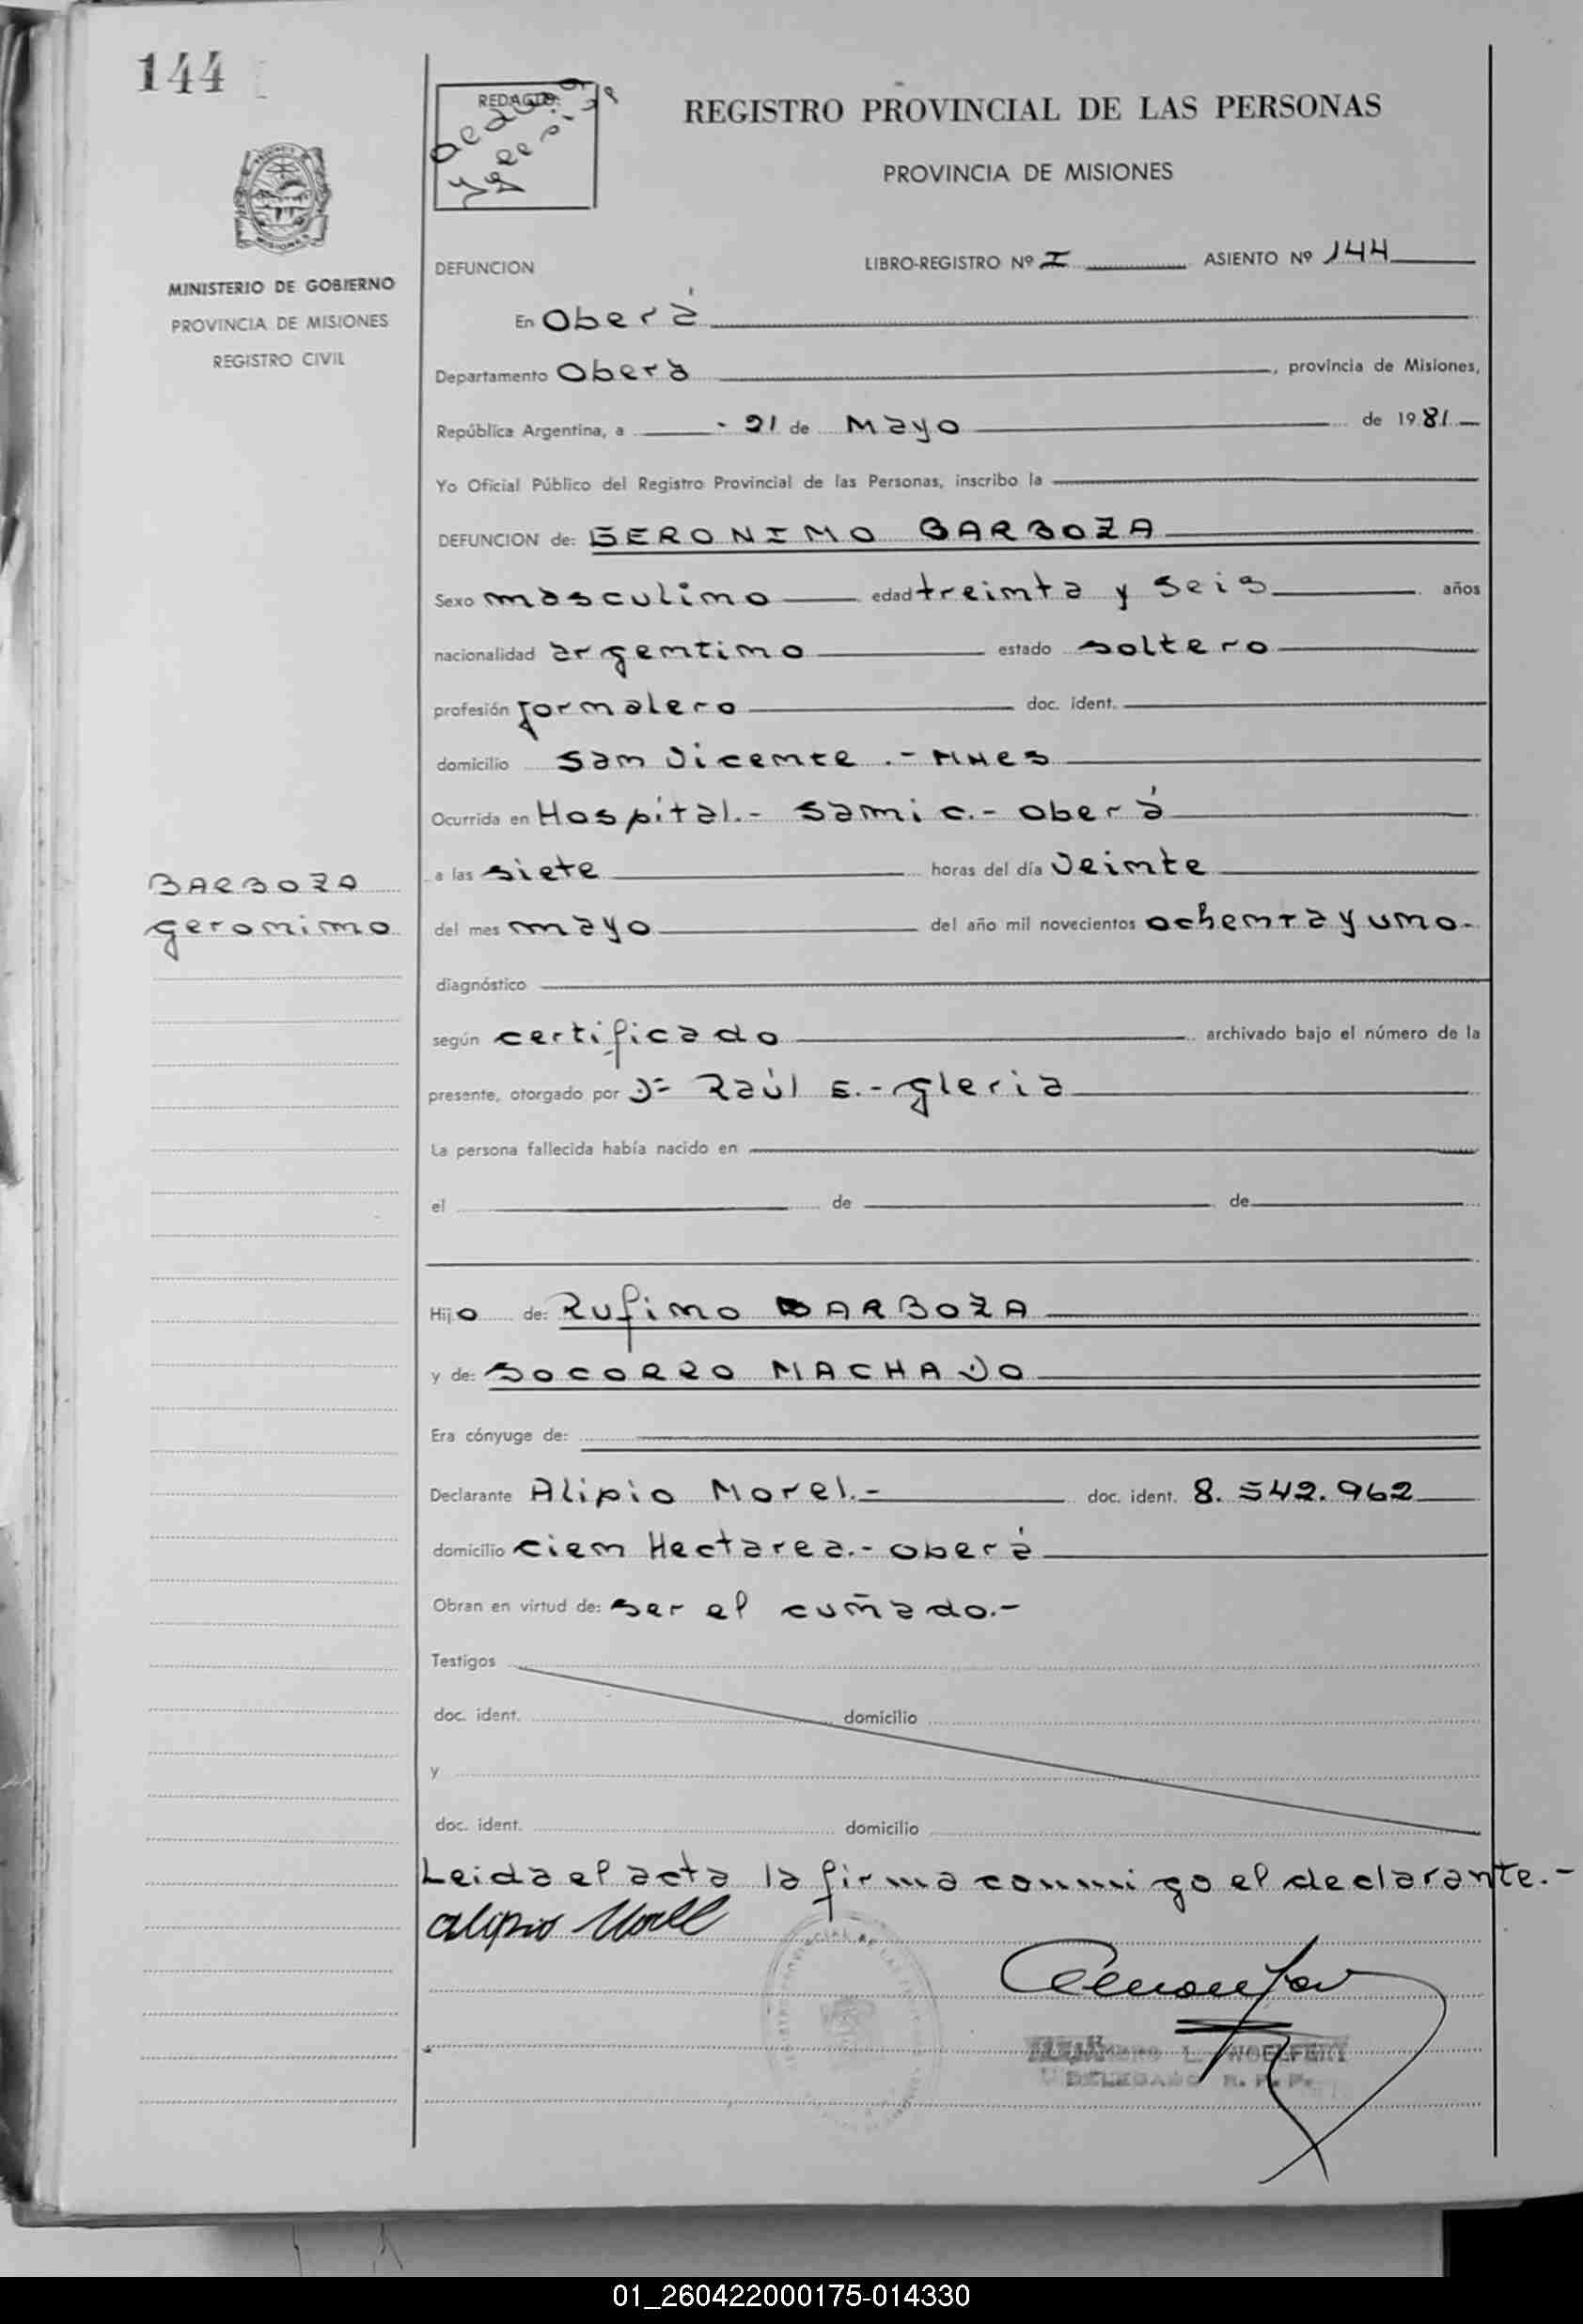 144
REDACTO:
REGISTRO PROVINCIAL DE LAS PERSONAS
PROVINCIA DE MISIONES
MINISTERIO DE GOBIERNO
PROVINCIA DE MISIONES
REGISTRO CIVIL
DEFUNCION LIBRO-REGISTRO Nº I ASIENTO Nº 144
En Oberá
Departamento Obera , provincia de Misiones,
República Argentina, a - 21 de Mayo de 1981
Yo Oficial Público del Registro Provincial de las Personas, inscribo la
DEFUNCION de: GERONIMO BARBOZA
Sexo masculino edad treinta y seis años
nacionalidad argentino estado soltero
profesión jornalero doc. ident.
domicilio San Vicente .- Mnes
Ocurrida en Hospital.- Samic.- Oberá
a las siete horas del día veinte
BARBOZA
Geronimo
del mes mayo del año mil novecientos ochenta y uno.
diagnóstico
según certificado archivado bajo el número de la
presente, otorgado por Dr Raúl E.- Gleria
La persona fallecida había nacido en
el de de
Hijo de: Rufino BARBOZA
y de: SOCORRO MACHADO
Era cónyuge de:
Declarante Alipio Morel.- doc. ident. 8.542.962
domicilio cien Hectarea.- Oberá
Obran en virtud de: ser el cuñado.-
Testigos
doc. ident. domicilio
y
doc. ident. domicilio
Leida el acta la firma conmigo el declarante.-
Alipio Morel
L. WOELFERT
DELEGADO R. P. P.
01_260422000175-014330